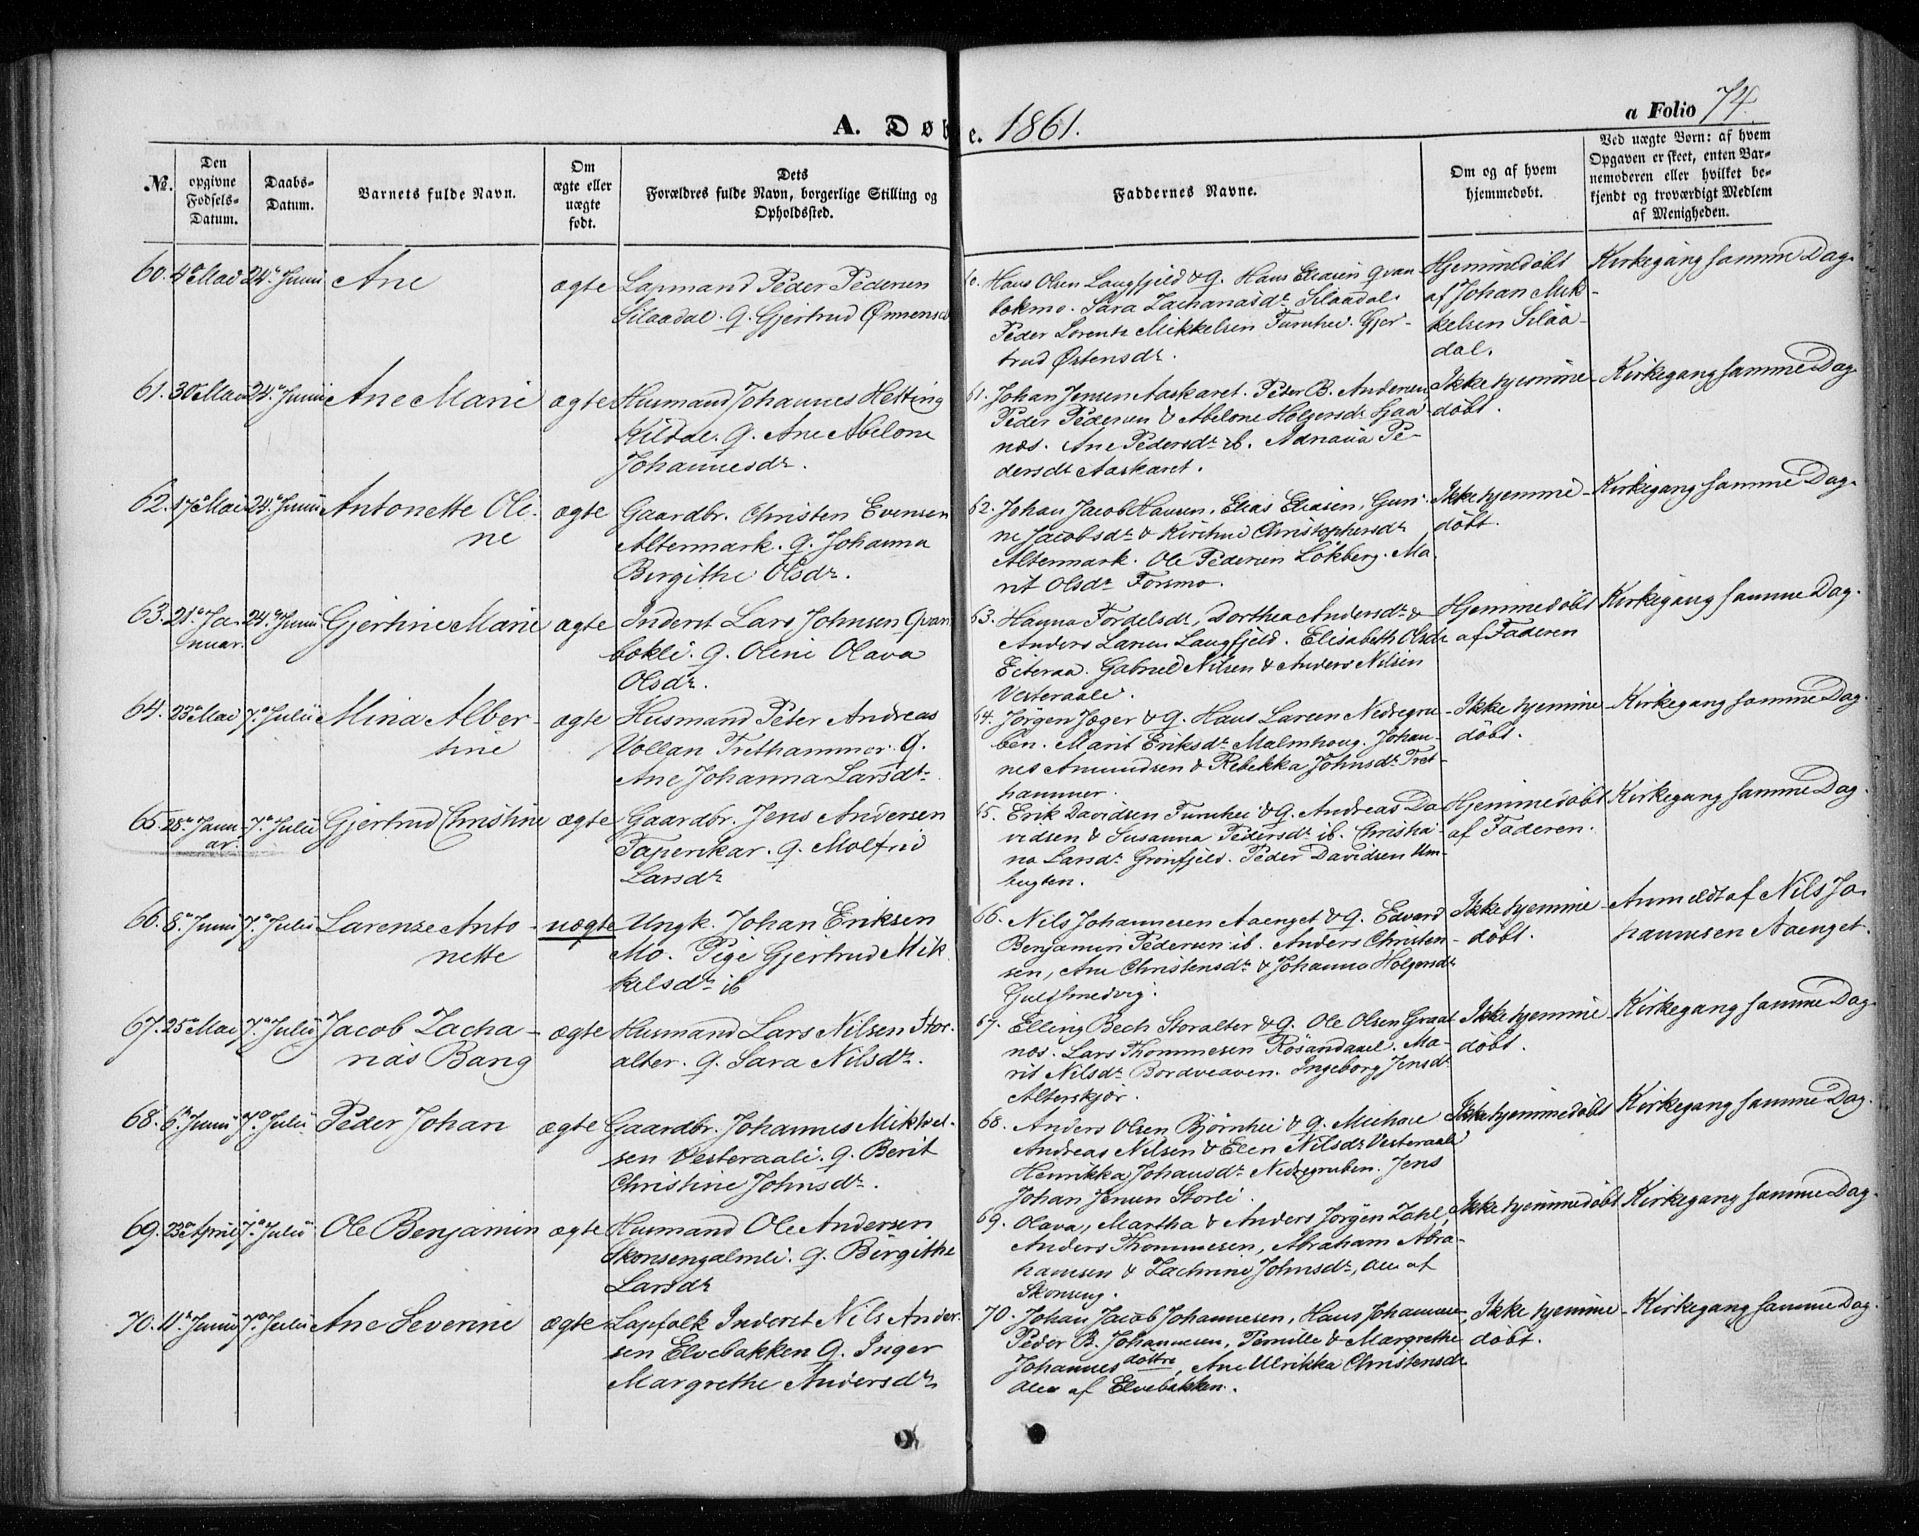 A. Døbte. 1861.
a Folio 74.
№.
Den opgivne Fødsels-Datum.
Daabs-Datum.
Barnets fulde Navn.
Om ægte eller uægte født.
Dets Forældres fulde Navn, borgerlige Stilling og Opholdssted.
Faddernes Navne.
Om og af hvem hjemmedøbt.
Ved uægte Børn: af hvem Opgaven er skeet, enten Barnemoderen eller hvilket bekjendt og troværdigt Medlem af Menigheden.
60. 4de Mai 24de Junii Ane ægte Lapmand Peder Pedersen
Silaadal. Q. Gjertrud
Hans Olsen Langfjeld & Q. Hans Eliasen Qvan-
bokmo. Sara Zachariasdr Silaadal.
Peder Lorents Mikkelsen Turnhei. Gjer-
trud Østensdr.
Hjemmedøbt
af Johan Mik-
kelsen Silaa-
dal.
Kirkegang samme Dag.
61. 30te Mai 24de Junii Ane Marie ægte Husmand Johannes Hetting
Kildal. Q. Ane Abelone
Johannesdr.
61. Johan Jensen Aaskaret. Peter B. Andersen
Peder Pedersen & Abelone Holgersdr Sjaa-
næs. Ane Pedersdr ib. Adriana Pe-
dersdr Aaskaret.
Ikke hjemme-
døbt.
Kirkegang samme Dag.
62. 17de Mai 24de Junii Antonette Oli-
ne
ægte Gaardbr. Christen Evensen
Altermark. Q. Johanna
Birgithe Olsdr.
62. Johan Jacob Hansen, Elias Eliasen, Guri-
ne Jacobsdr & Kirstine Christophersdr
Altermark. Ole Pedersen Lökberg. Ma-
rit Olsdr Forsmo.
Ikke hjemme-
døbt.
Kirkegang samme Dag.
63. 21de Ja-
nuar.
24de Junii Gjertine Marie ægte Inderst Lars Johnsen Qvan-
bokli. Q. Oline Olava
Olsdr.
63. Hanna Tordelsdr, Dorthea Andersdr &
Anders Larsen Langfjeld. Elisabeth Olsdr
Eiteraa. Gabriel Nilsen & Anders Nilsen
Vesteraali.
Hjemmedøbt
af Faderen
Kirkegang samme Dag.
64. 23de Mai 7de Julii Mina Alber-
tine
ægte Husmand Peter Andreas
Vollan Trethammer. Q.
Ane Johanna Larsdr.
64. Jörgen Jæger & Q. Hans Larsen Nedregru-
ben. Marit Eriksdr Malmhoug. Johan-
nes Amundsen & Rebekka Johnsdr Tret-
hammer.
Ikke hjemme-
døbt.
Kirkegang samme Dag.
65. 28de Janu-
ar.
7de Julii Gjertrud Christine ægte Gaardbr. Jens Andersen
Tapeskar. Q. Molfrid
Larsdr
65. Erik Davidsen Turnhei & Q. Andreas Da-
vidsen & Susanna Pedersdr ib. Christia-
na Larsdr Grönfjeld. Peder Davidsen Um-
bugten.
Hjemmedøbt
af Faderen.
Kirkegang samme Dag.
66. 8de Junii 7de Julii Larenze Anto-
nette
uægte Ungk. Johan Eriksen
Mo. Pige Gjertrud Mik-
kelsdr ib
66. Nils Johannesen Aaenget & Q. Edvard
Benjamin Pedersen ib. Anders Christen-
sen, Ane Christensdr & Johanna Holgersdr
Guldsmedvig.
Ikke hjemme-
døbt.
Anmeldt af Nils Jo-
hannesen Aaenget.
67. 25de Mai 7de Julii Jacob Zacha-
rias Bang
ægte Husmand Lars Nilsen Stor-
alter. Q. Sara Nilsdr.
67. Elling Bech Storalter & Q. Ole Olsen Graat-
næs. Lars Thommesen Rösandaxel. Ma-
rit Nilsdr Bordveaven. Ingeborg Jensdr
Alterskjær.
Ikke hjemme-
døbt.
Kirkegang samme Dag.
68. 6te Junii 7de Julii Peder Johan ægte Gaardbr. Johannes Mikkel-
sen Vesteraali. Q. Berit
Christine Johnsdr.
68. Anders Olsen Bjørnhei & Q. Michal
Andreas Nilsen & Elen Nilsdr Vesteraali
Henrikka Johansdr Nedregruben. Jens
Johan Jensen Storli.
Ikke hjemmedøbt
Kirkegang samme Dag.
69. 23de April 7de Julii Ole Benjamin ægte Husmand Ole Andersen
Skonsengalmli. Q. Birgithe
Larsdr
69. Olava, Martha & Anders Jörgen Zahl,
Anders Thommesen, Abraham Abra-
hamsen & Zachrine Johnsdr, alle af
Skonseng.
Ikke hjemmedøbt
Kirkegang samme Dag.
70. 11te Junii 7de Julii Ane Severine ægte Lapfolk Inderst Nils Ander-
sen Elvebakken Q. Inger
Margrethe Andersdr
70. Johan Jacob Johannesen, Hans Johannesen,
Peder B. Johannesen, Pernille & Margrethe
Johannesdöttre, Ane Ulrikka Christensdr
alle af Elvebakken.
Ikke hjemme-
døbt.
Kirkegang samme Dag.